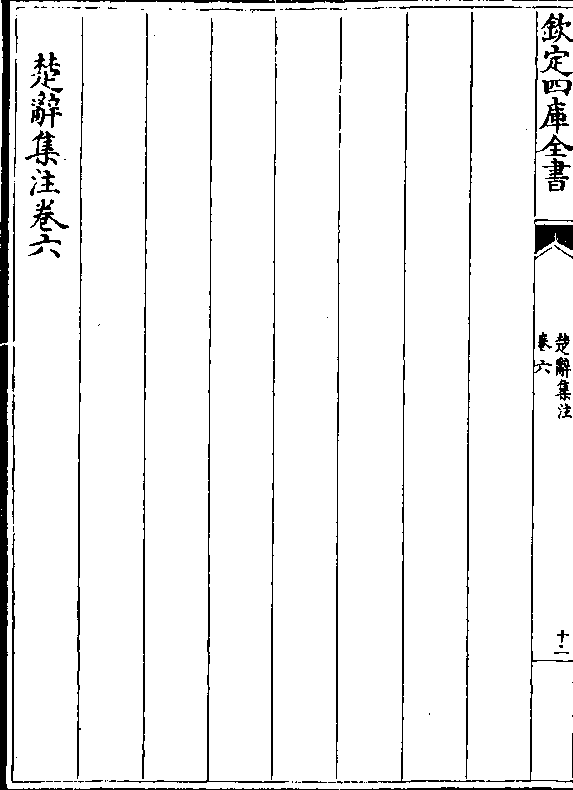 欽定四庫全書
楚辭集注
卷六
十二
楚辭集注卷六